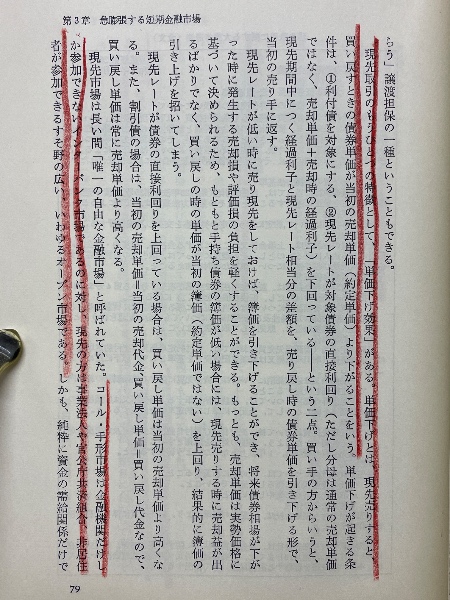 第3章 急膨張する短期金融市場
らう」譲渡担保の一種ということもできる。
現先取引のもうひとつの特徴として、「単価下げ効果」がある。単価下げとは、現先売りすると、
買い戻すときの債券単価が当初の売却単価(約定単価)より下がることをいう。単価下げが起きる条
件は、①利付債を対象にする、②現先レートが対象債券の直接利回り(ただし分母は通常の売却単価
ではなく、売却単価+売却時の経過利子)を下回っている——という二点。買い手の方からいうと、
現先期間中につく経過利子と現先レート相当分の差額を、売り戻し時の債券単価を引き下げる形で、
当初の売り手に返す。
現先レートが低い時に売り現先をしておけば、簿価を引き下げることができ、将来債券相場が下が
った時に発生する売却損や評価損の負担を軽くすることができる。もっとも、売却単価は実勢価格に
基づいて決められるため、もともと手持ち債券の簿価が低い場合には、現先売りする時に売却益が出
るばかりでなく、買い戻しの時の単価が当初の簿価(約定単価ではない)を上回り、結果的に簿価の
引き上げを招いてしまう。
現先レートが債券の直接利回りを上回っている場合は、買い戻し単価が当初の売却単価より高くな
る。また、割引債の場合は、当初の売却単価=当初の売却代金、買い戻し単価=買い戻し代金なので、
買い戻し単価は常に売却単価より高くなる。
現先市場は長い間「唯一の自由な金融市場」と呼ばれていた。コール・手形市場は金融機関だけし
か参加できないインターバンク市場であるのに対し、現先の方は事業法人や官公庁共済組合、非居住
者が参加できるすそ野の広い、いわゆるオープン市場である。しかも、純粋に資金の需給関係だけで
79